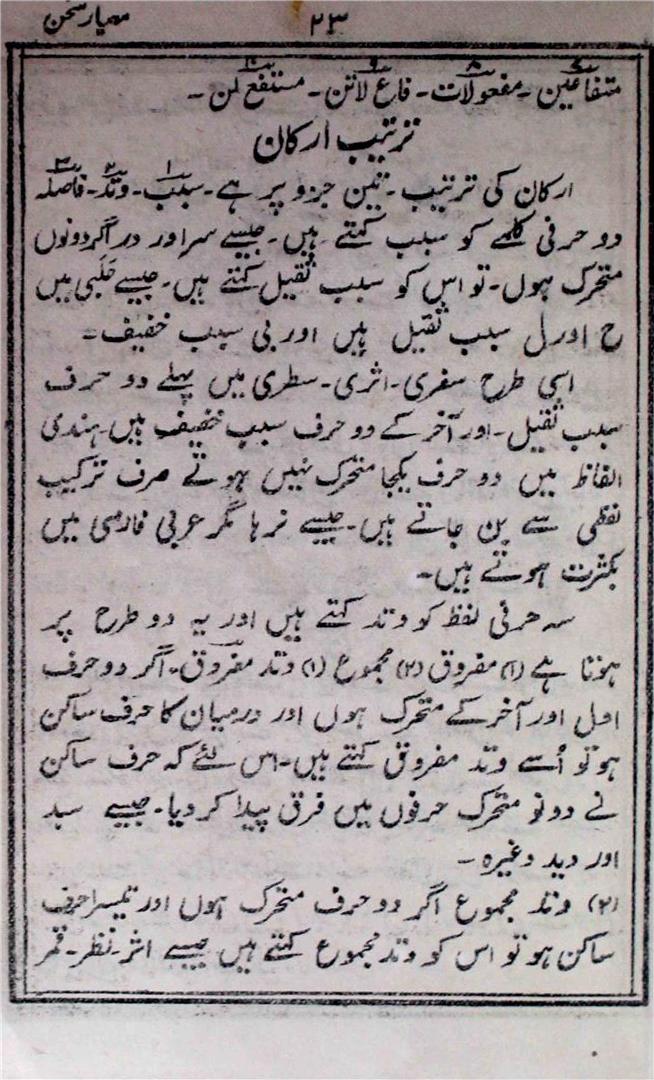 معیار سخن
۲۳
متفاعلین۔ مفعولات۔ فاع لاتن۔ مستفع لن۔
ترتیب ارکان
ارکان کی ترتیب۔ تین جزو پر ہے۔ سبب۔ وتد۔ فاصلہ
دو حرفی کلمے کو سبب کہتے ہیں۔ جیسے سر اور در اگر دونوں
متحرک ہوں۔ تو اس کو سبب ثقیل کہتے ہیں۔ جیسے حَلَبی ہیں
ح اور ل سبب ثقیل ہیں اور بی سبب خفیف۔
اسی طرح سفری۔ اثری۔ سطری میں پہلے دو حرف
سبب ثقیل۔ اور آخر کے دو حرف سبب خفیف ہیں۔ ہندی
الفاظ میں دو حرف یکجا متحرک نہیں ہوتے صرف ترکیب
لفظی سے بن جاتے ہیں۔ جیسے نرہا مگر عربی فارسی میں
بکثرت ہوتے ہیں۔
سہ حرفی لفظ کو وتد کہتے ہیں اور یہ دو طرح پر
ہوتا ہے (۱) مفروق (۲) مجموع (۱) وتد مفروق۔ اگر دو حرف
اول اور آخر کے متحرک ہوں اور درمیان کا حرف ساکن
ہو تو اُسے وتد مفروق کہتے ہیں۔ اس لئے کہ حرف ساکن
نے دونو متحرک حرفوں میں فرق پیدا کر دیا۔ جیسے سبد
اور دید وغیرہ۔
(۲) وتد مجموع اگر دو حرف متحرک ہوں اور تیسرا حرف
ساکن ہو تو اس کو وتد مجموع کہتے ہیں جیسے اثر۔ نظر۔ قمر